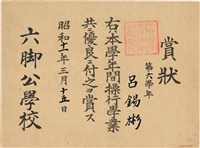 賞狀
第六學年
呂錫彬
右ハ本學年間操行學業
共ニ優良ニ付之ヲ賞ス
昭和十一年三月十五日
六脚公學校